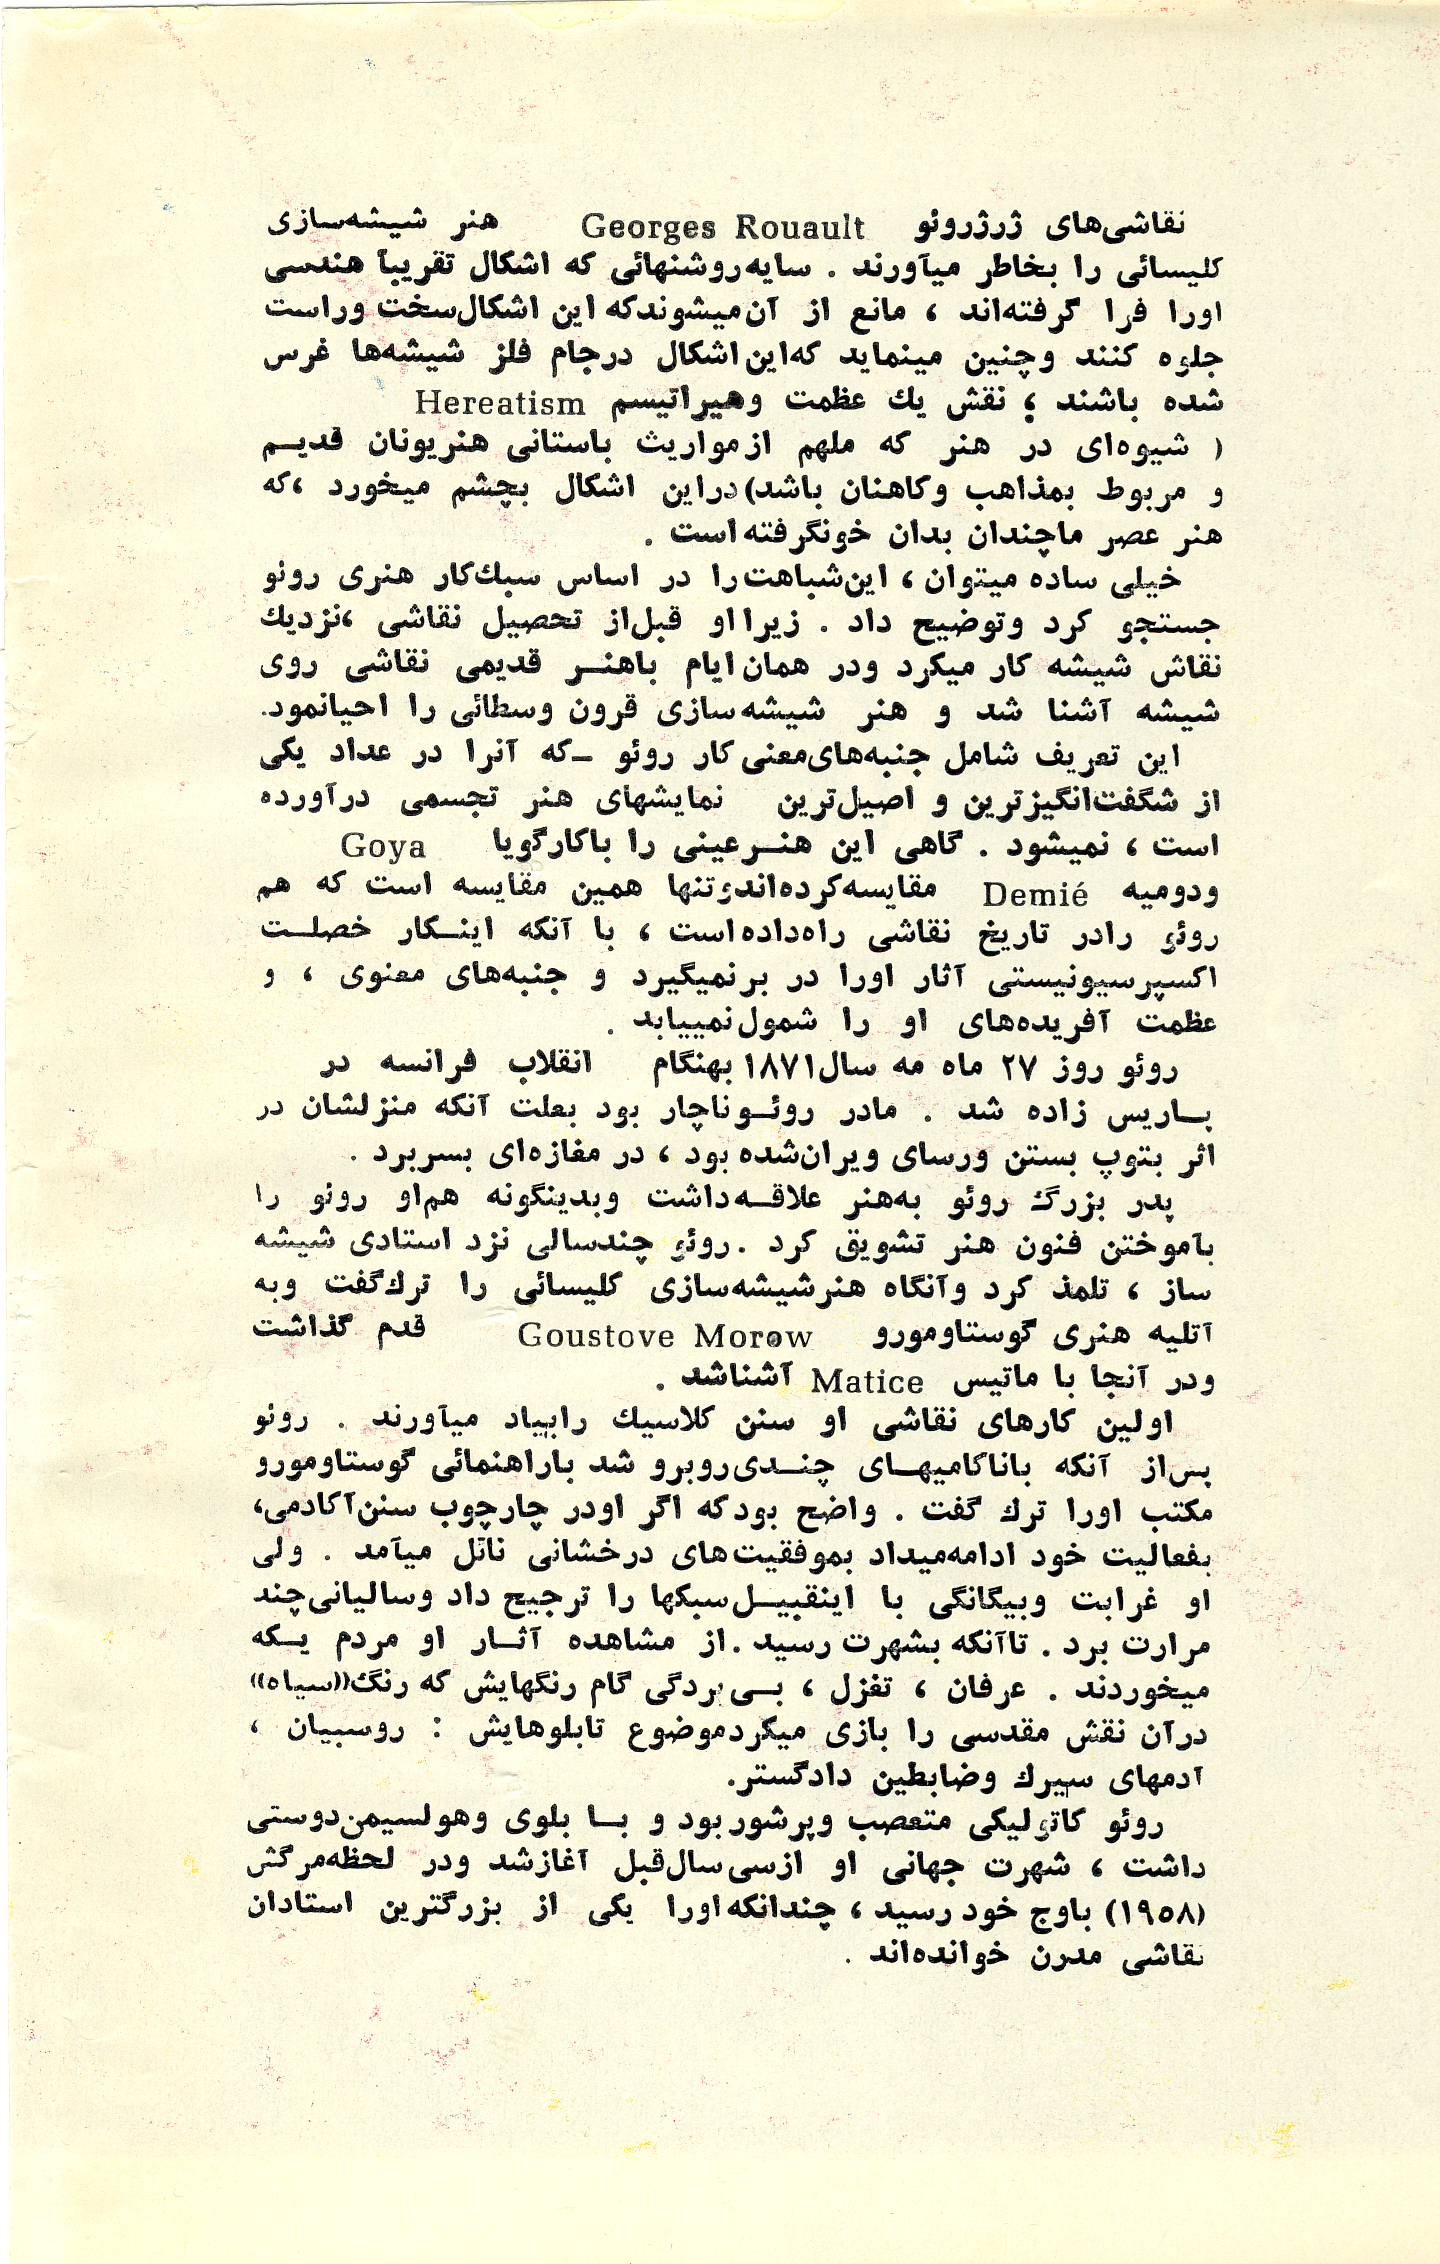 نقاشی‌های ژرژروئو Georges Rouault هنر شیشه‌سازی
کلیسائی را بخاطر میآورند . سایه‌روشنهائی که اشکال تقریباً هندسی
اورا فرا گرفته‌اند ، مانع از آن‌میشوندکه این اشکال‌سخت وراست
جلوه کنند وچنین مینماید که‌این‌اشکال درجام فلز شیشه‌ها غرس
شده باشند ؛ نقش یك عظمت وهیراتیسم Hereatism
( شیوه‌ای در هنر که ملهم ازمواریث باستانی هنریونان قدیم
و مربوط بمذاهب وکاهنان باشد) دراین اشکال بچشم میخورد ،که
هنر عصر ماچندان بدان خونگرفته‌است .
خیلی ساده میتوان ، این‌شباهت‌را در اساس سبك‌کار هنری رونو
جستجو کرد وتوضیح داد . زیرااو قبل‌از تحصیل نقاشی ،نزدیك
نقاش شیشه کار میکرد ودر همان‌ایام باهنر قدیمی نقاشی روی
شیشه آشنا شد و هنر شیشه‌سازی قرون وسطائی را احیانمود.
این تعریف شامل جنبه‌های‌معنی‌کار روئو ـ‌که آنرا در عداد یکی
از شگفت‌انگیزترین و اصیل‌ترین نمایشهای هنر تجسمی درآورده
است ، نمیشود . گاهی این هنرعینی را باکارگویا Goya
ودومیه Demié مقایسه‌کرده‌اندوتنها همین مقایسه است که هم
روئو رادر تاریخ نقاشی راه‌داده‌است ، با آنکه اینکار خصلت
اکسپرسیونیستی آثار اورا در برنمیگیرد و جنبه‌های معنوی ، و
عظمت آفریده‌های او را شمول‌نمییابد .
روئو روز ۲۷ ماه مه سال۱۸۷۱ بهنگام انقلاب فرانسه در
پاریس زاده شد . مادر روئوناچار بود بعلت آنکه منزلشان در
اثر بتوپ بستن ورسای ویران‌شده‌بود ، در مغازه‌ای بسربرد .
پدر بزرگ روئو به‌هنر علاقه‌داشت وبدینگونه هم‌او رونو را
بآموختن فنون هنر تشویق کرد .روئو چندسالی نزد استادی شیشه
ساز ، تلمذ کرد وآنگاه هنرشیشه‌سازی کلیسائی را ترك‌گفت وبه
آتلیه هنری گوستاومورو Goustove Morow قدم گذاشت
ودر آنجا با ماتیس Matice آشناشد .
اولین کارهای نقاشی او سنن کلاسیك رابیاد میآورند . رونو
پس‌از آنکه باناکامیهای چندی‌روبرو شد باراهنمائی گوستاومورو
مکتب اورا ترك گفت . واضح بودکه اگر اودر چارچوب سنن‌آکادمی،
بفعالیت خود ادامه‌میداد بموفقیت‌های درخشانی نائل میآمد . ولی
او غرابت وبیگانگی با اینقبیل‌سبکها را ترجیح داد وسالیانی‌چند
مرارت برد . تاآنکه بشهرت رسید .از مشاهده آثار او مردم یکه
میخوردند . عرفان ، تغزل ، بی‌پردگی گام رنگهایش که رنگ((سیاه))
درآن نقش مقدسی را بازی میکردموضوع تابلوهایش : روسپیان ،
آدمهای سیرك وضابطین دادگستر.
روئو کاتولیکی متعصب وپرشوربود و با بلوی وهولسیمن‌دوستی
داشت ، شهرت جهانی او ازسی‌سال‌قبل آغازشد ودر لحظه‌مرگش
(۱۹۵۸) باوج خود رسید ، چندانکه‌اورا یکی از بزرگترین استادان
نقاشی مدرن خوانده‌اند .